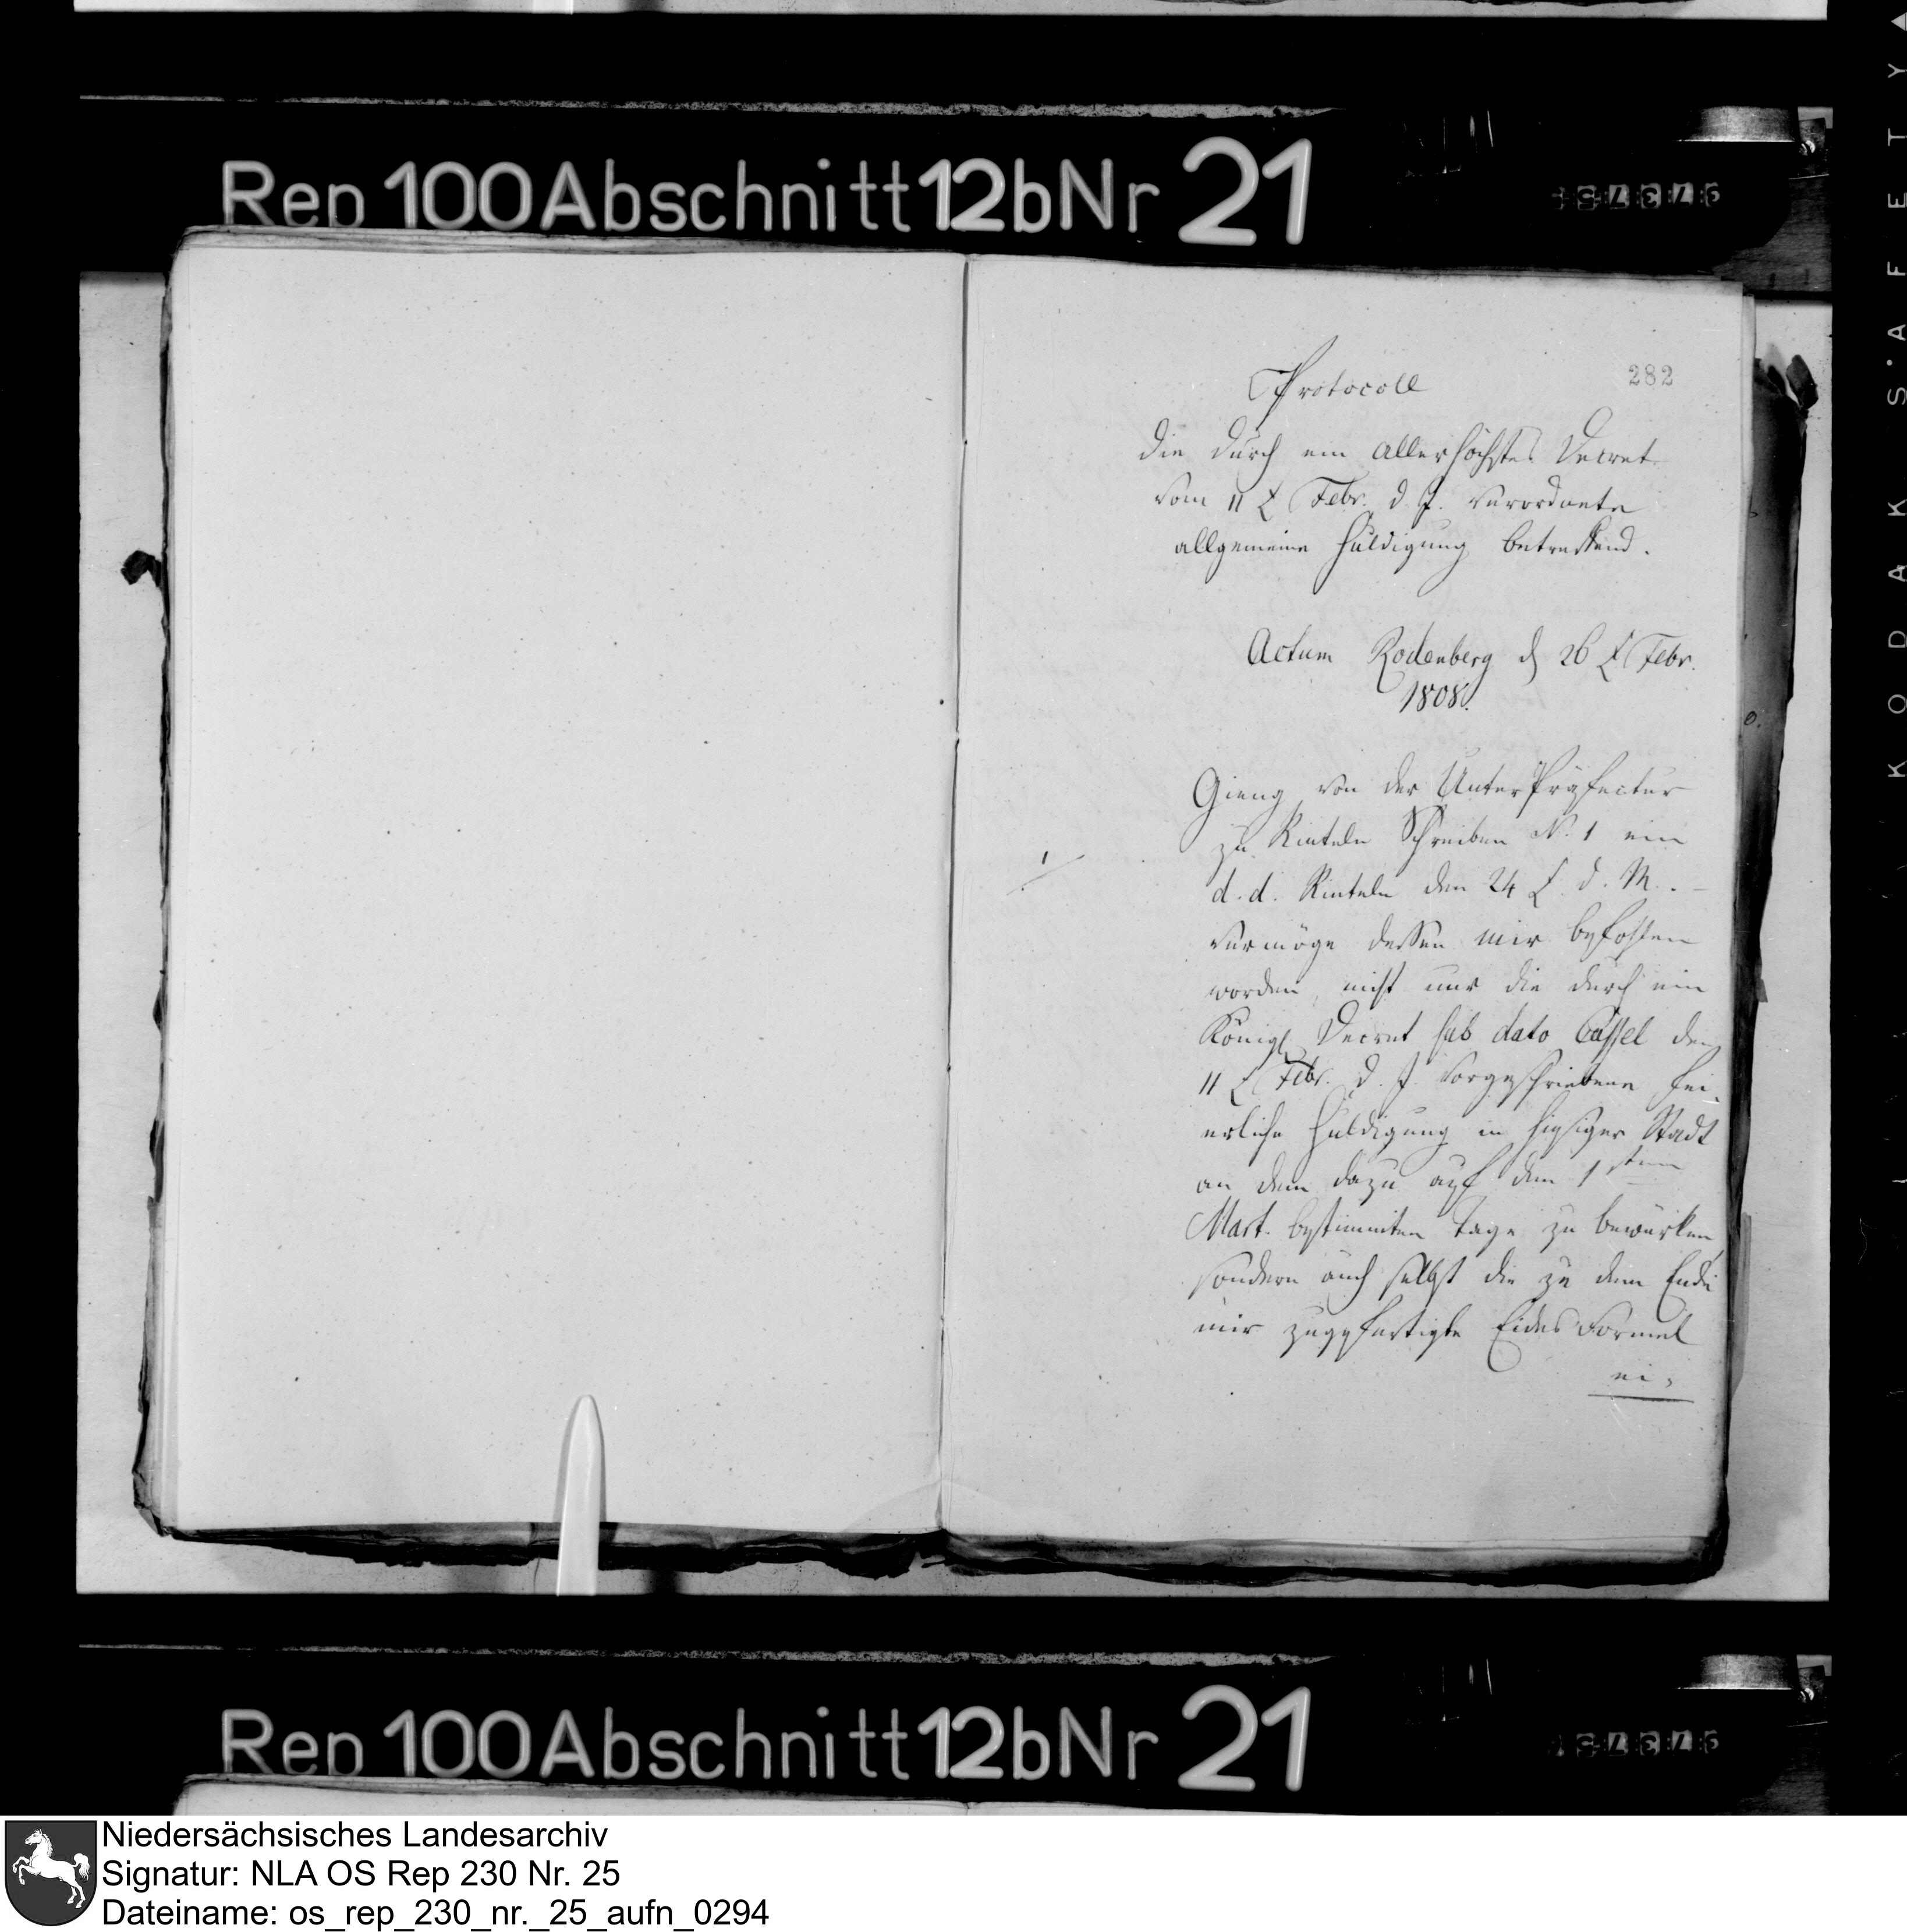 Rep 100 Abschnitt 12b Nr 21
282
Protocoll
die durch ein allerhöchstes Decret
vom 11 t Febr. d. J. verordnete
allgemeine Huldigung betreffend.
Actum Rodenberg d 26 t Febr.
1808.
Gieng von der UnterPräfectur
zu Rinteln Schreiben N. 1 ein
1
d. d. Rinteln den 24 t d. M. -
vermöge dessen mir befohlen
worden, nicht nur die durch ein
Königl Decret sub dato Cassel den
11 t Febr. d. J. vorgeschriebene fei-
erliche Huldigung in hiesiger Stadt
an dem dazu auf den 1 sten
Mart. bestimmten Tage zu bewürken,
sondern auch selbst die zu dem Ende
mir zugefertigte Eides Formel
Rep 100 Abschnitt 12b Nr 21
Niedersächsisches Landesarchiv
Signatur: NLA OS Rep 230 Nr. 25
Dateiname: os_rep_230_nr._25_aufn_0294
KODAK S.AFETY